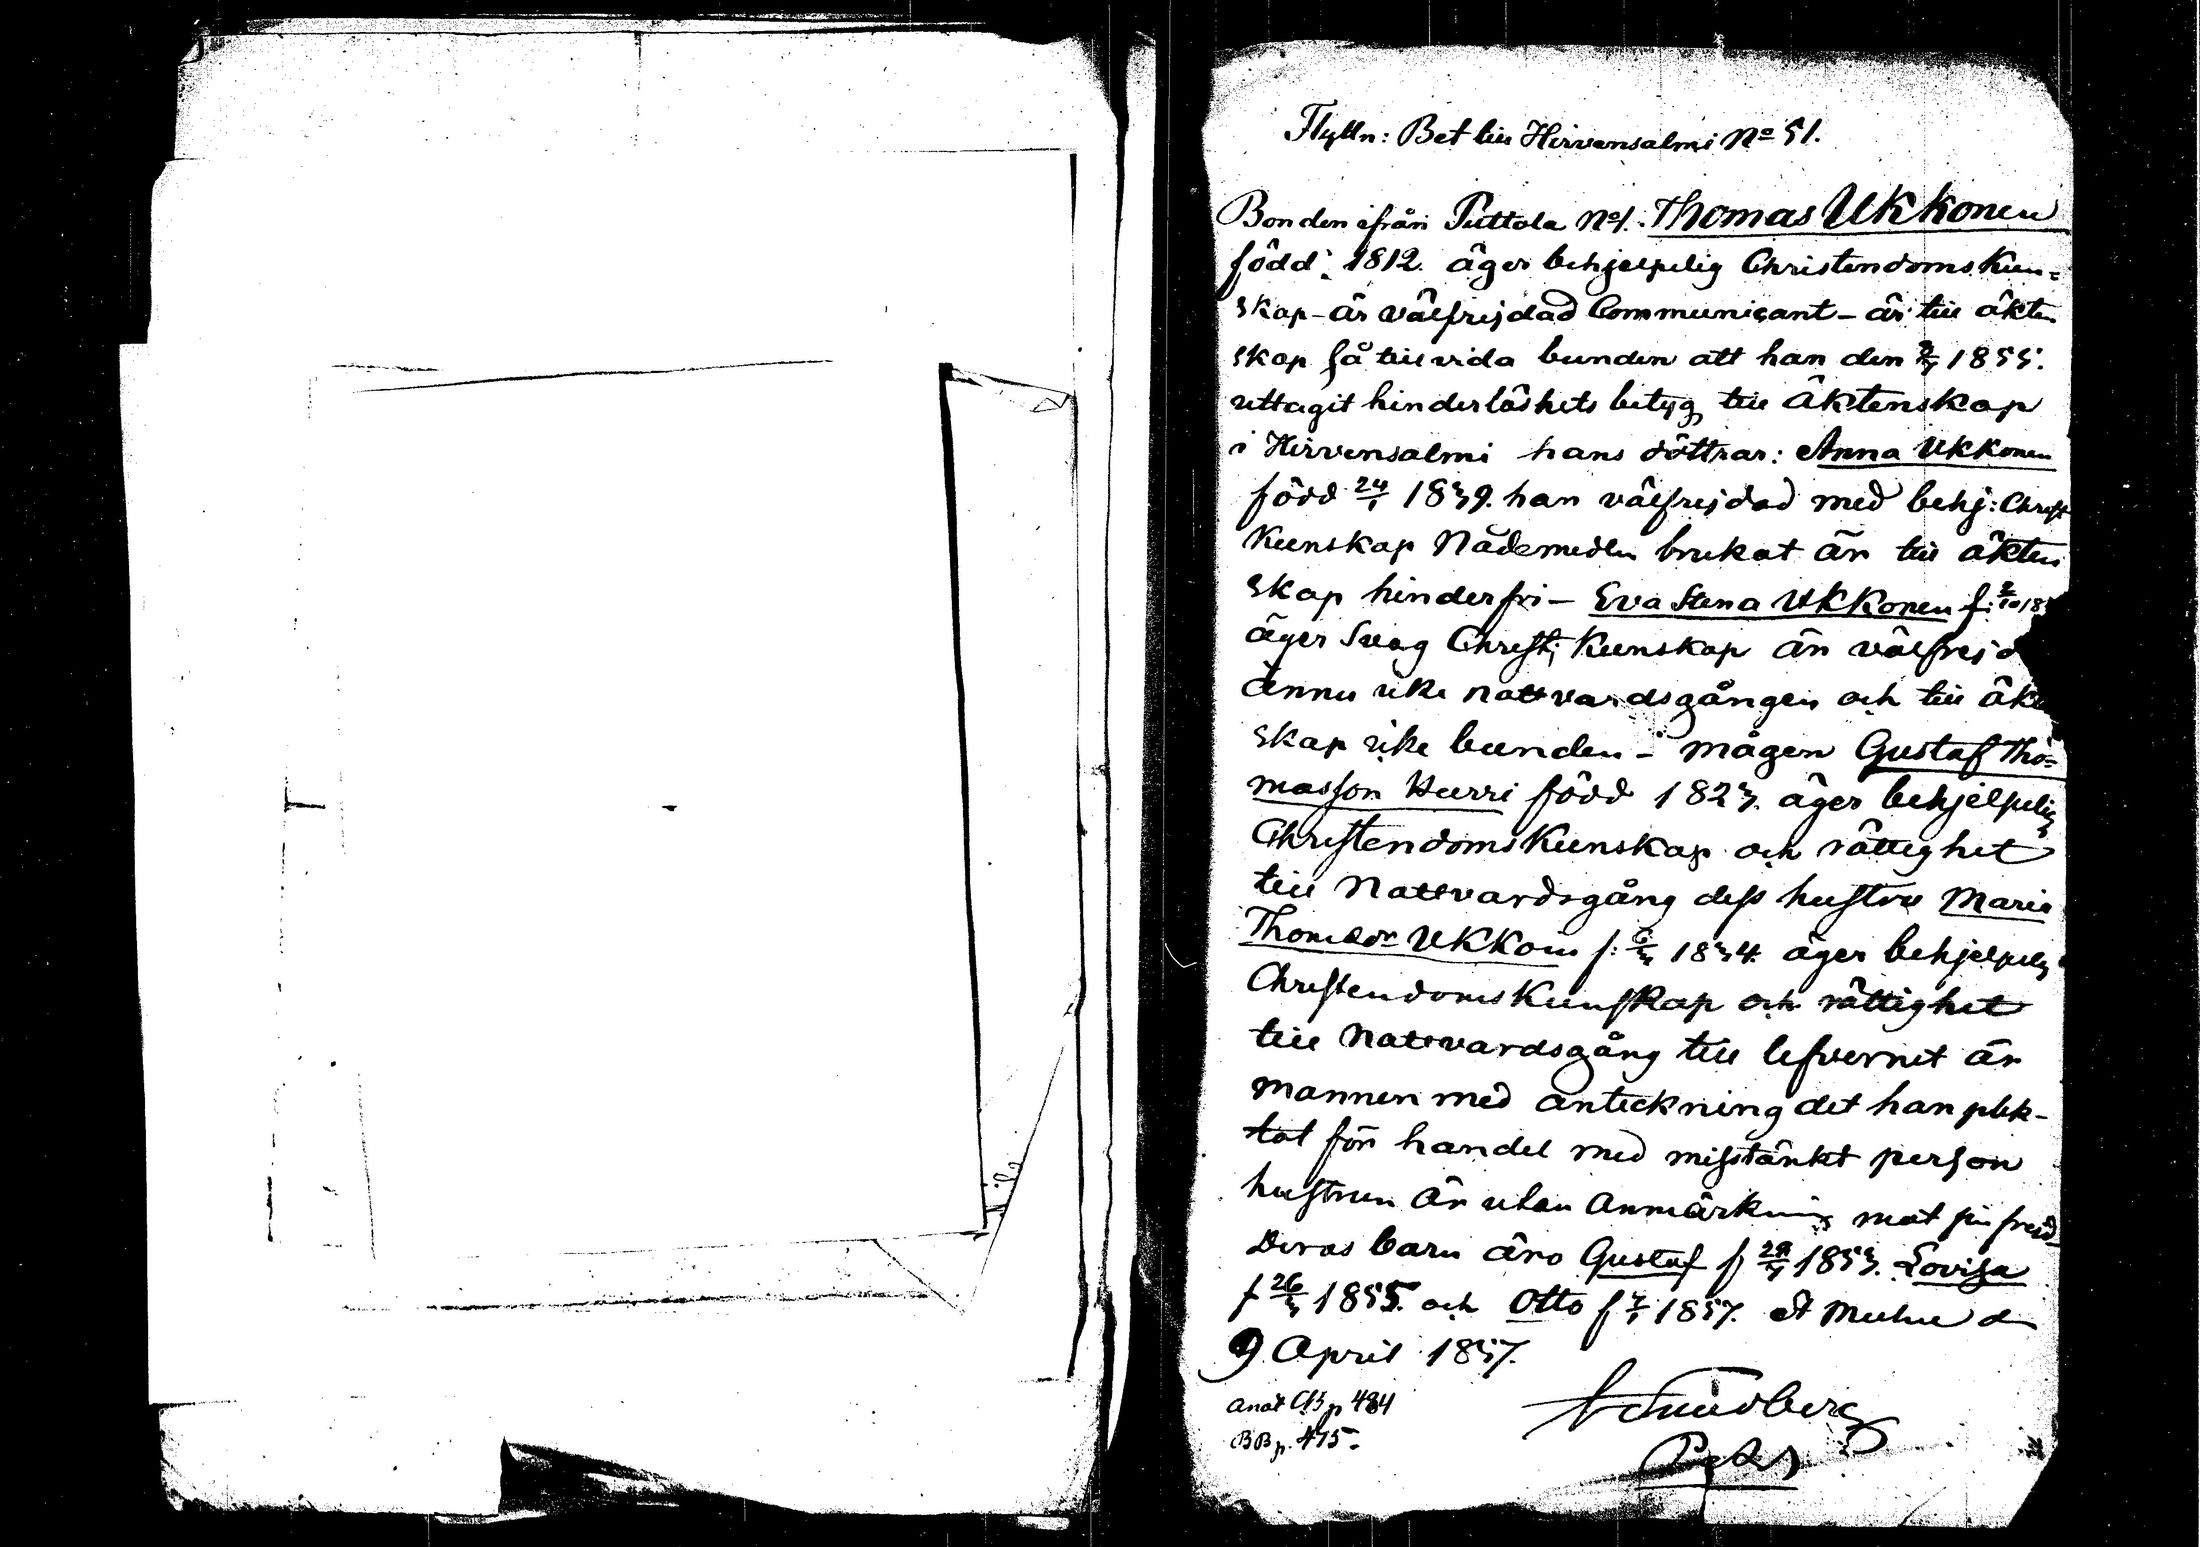 Flyttn: Bet till Hirvensalmi No 51.
Bonden ifrån Puttola No 1. Thomas Ukkonen
född: 1812. äger behjelpelig Christendoms Kun=
skap - är välfrejdad Communicant - är till äkten
skap så till vida bunden att han den 1855.
uttagit hinderlöshets betyg till Äktenskap
i Hirvensalmi hans döttrar: Anna Ukkonen
född 24/1 1839. han välfrejdad med behj: Christ
Kunskap Nådemedlen brukat är till äkten
skap hinderfri - Eva Stina Ukkonen f:
äger Svag Christ; Kunskap är välfrejd
ännu icke nattvardsgången och till äkt
skap icke bunden - mågen Gustaf Tho=
masson Hurri född 1823. äger behjelpelig
Christendoms Kunskap och rättighet
till Nattvardsgång dess hustru Maria
Thomasdr Ukkoin f: 1834. äger behjelpelig
Christendoms Kunskap och rättighet
till Nattvardsgång till lefvernet är
mannen med anteckning det han plik-
tat för handel med misstänkt person
hustrun är utan Anmärkning mot sin frejd
Deras barn äro Gustaf f 1853. Lovisa
f 26/3 1855. och Otto f 7/1 1857. d
9 April 1857.
anot CB p 484
BB p. 475.
Sundberg